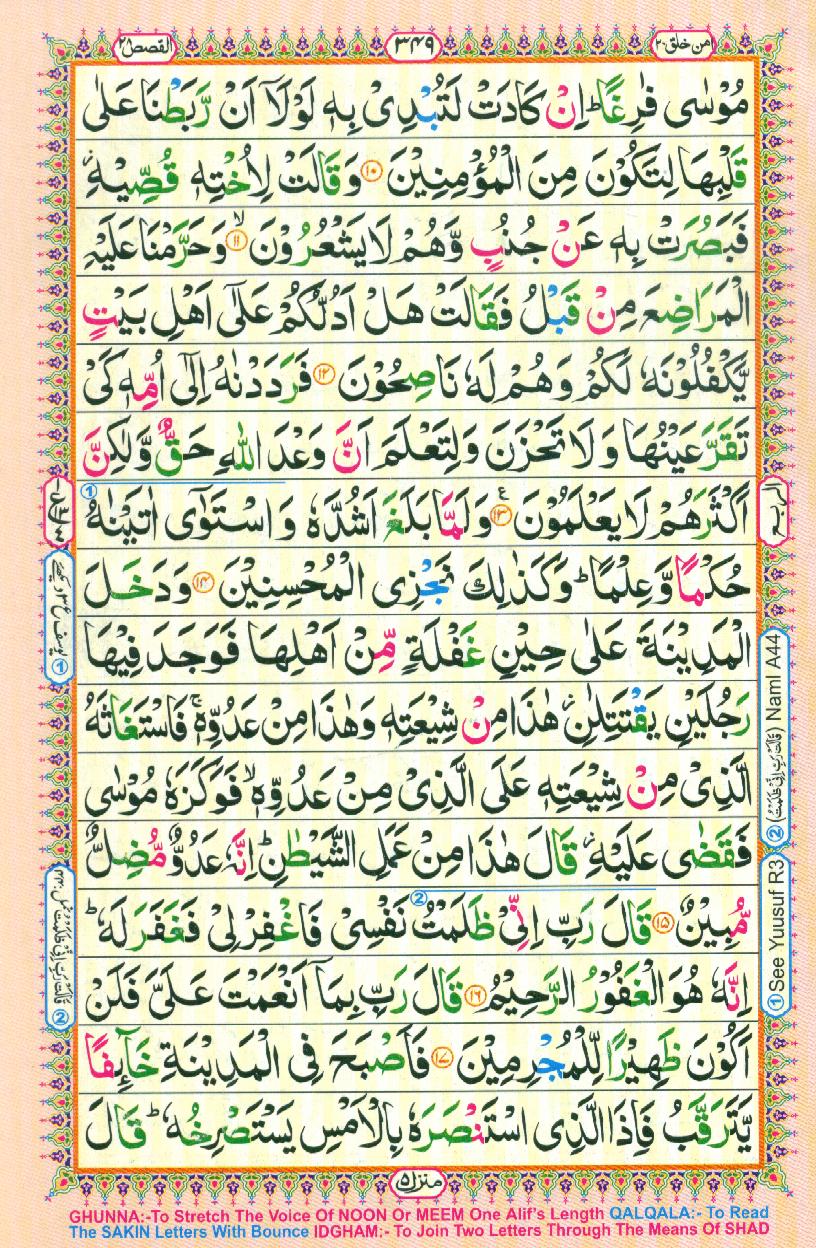 القصص ٢٨
٣٤٩
امن خلق ٢٠
مُوۡسٰى فٰرِغًا ؕ اِنۡ كَادَتۡ لَتُبۡدِىۡ بِهٖ لَوۡلَاۤ اَنۡ رَّبَطۡنَا عَلٰى
قَلۡبِهَا لِتَكُوۡنَ مِنَ الۡمُؤۡمِنِيۡنَ ﴿۱۰﴾ وَقَالَتۡ لِاُخۡتِهٖ قُصِّيۡهِ ؗ
فَبَصُرَتۡ بِهٖ عَنۡ جُنُبٍ وَّهُمۡ لَا يَشۡعُرُوۡنَ ۙ﴿۱۱﴾ وَحَرَّمۡنَا عَلَيۡهِ
الۡمَرَاضِعَ مِنۡ قَبۡلُ فَقَالَتۡ هَلۡ اَدُلُّكُمۡ عَلٰٓى اَهۡلِ بَيۡتٍ
يَّكۡفُلُوۡنَهٗ لَكُمۡ وَهُمۡ لَهٗ نَاصِحُوۡنَ ﴿۱۲﴾ فَرَدَدۡنٰهُ اِلٰٓى اُمِّهٖ كَىۡ
تَقَرَّ عَيۡنُهَا وَلَا تَحۡزَنَ وَلِتَعۡلَمَ اَنَّ وَعۡدَ اللّٰهِ حَقٌّ وَّلٰكِنَّ
اَكۡثَرَهُمۡ لَا يَعۡلَمُوۡنَ ﴿۱۳﴾ ع وَلَمَّا بَلَغَ اَشُدَّهٗ وَاسۡتَوٰٓى اٰتَيۡنٰهُ ①
حُكۡمًا وَّعِلۡمًا ؕ وَكَذٰلِكَ نَجۡزِى الۡمُحۡسِنِيۡنَ ﴿۱۴﴾ وَدَخَلَ
الۡمَدِيۡنَةَ عَلٰى حِيۡنِ غَفۡلَةٍ مِّنۡ اَهۡلِهَا فَوَجَدَ فِيۡهَا
رَجُلَيۡنِ يَقۡتَتِلٰنِ ؗ هٰذَا مِنۡ شِيۡعَتِهٖ وَهٰذَا مِنۡ عَدُوِّهٖ ۚ فَاسۡتَغَاثَهُ
الَّذِىۡ مِنۡ شِيۡعَتِهٖ عَلَى الَّذِىۡ مِنۡ عَدُوِّهٖ ۙ فَوَكَزَهٗ مُوۡسٰى
فَقَضٰى عَلَيۡهِ ؗ قَالَ هٰذَا مِنۡ عَمَلِ الشَّيۡطٰنِ ؕ اِنَّهٗ عَدُوٌّ مُّضِلٌّ
مُّبِيۡنٌ ﴿۱۵﴾ قَالَ رَبِّ اِنِّىۡ ظَلَمۡتُ ② نَفۡسِىۡ فَاغۡفِرۡ لِىۡ فَغَفَرَ لَهٗ ؕ
اِنَّهٗ هُوَ الۡغَفُوۡرُ الرَّحِيۡمُ ﴿۱۶﴾ قَالَ رَبِّ بِمَاۤ اَنۡعَمۡتَ عَلَىَّ فَلَنۡ
اَكُوۡنَ ظَهِيۡرًا لِّلۡمُجۡرِمِيۡنَ ﴿۱۷﴾ فَاَصۡبَحَ فِى الۡمَدِيۡنَةِ خَآئِفًا
يَّتَرَقَّبُ فَاِذَا الَّذِى اسۡتَنۡصَرَهٗ بِالۡاَمۡسِ يَسۡتَصۡرِخُهٗ ؕ قَالَ
الربع
① See Yuusuf R3 ② (قَالَتۡ رَبِّ اِنِّىۡ ظَلَمۡتُ) Naml A44
منزل ۵
GHUNNA:-To Stretch The Voice Of NOON Or MEEM One Alif's Length QALQALA:- To Read
The SAKIN Letters With Bounce IDGHAM:- To Join Two Letters Through The Means Of SHAD